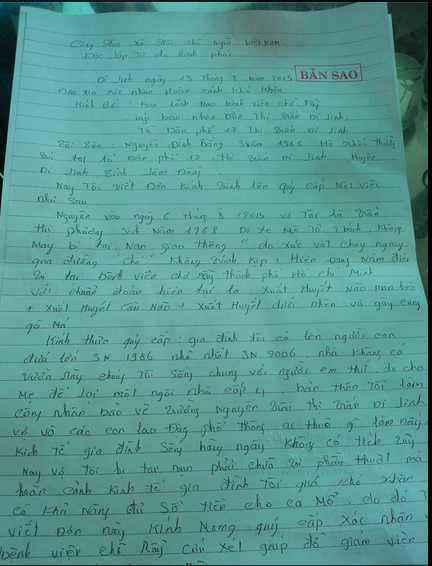 Cộng Hòa Xã Hội chủ nghĩa Việt Nam
Độc lập Tự do Hạnh phúc
Di Linh ngày 15 Tháng 8 năm 2015
BẢN SAO
Đơn xin xác nhận Hoàn cảnh Khó Khăn
Kính Gửi: Ban Lãnh Đạo bệnh viện chợ Rẫy
Uỷ ban nhân Dân Thị Trấn Di Linh
Tổ Dân phố 17 Thị Trấn Di Linh
Tôi Tên: Nguyễn Đình Bảng Sinh năm 1966 Hộ Khẩu thường
Trú tại tổ Dân phố 17 Thị Trấn Di Linh Huyện
Di Linh Tỉnh Lâm Đồng.
Nay Tôi Viết Đơn Kính Trình lên quý cấp Một việc
như Sau
Nguyên vào ngày 6 tháng 8 / 2015 vợ Tôi là Trần
thị phường Sinh Năm 1968 Đi xe Mô Tô 2 bánh. Không
May bị tai Nạn giao thông do xúc vật chạy ngang
qua đường "chó" Không Tránh Kịp, Hiện Đang Nằm điều
Trị tại bệnh viện chợ rẫy thành phố Hồ Chí Minh
Với chuẩn đoán hiện tại là Xuất Huyết Não
+ Xuất Huyết Cầu Não + Xuất Huyết dưới nhện và gãy cung
gò Má
Kính thưa quý cấp: gia đình tôi có bốn người con
đứa lớn SN 1986 nhỏ nhất SN 2006, nhà Không có
Vườn Rẫy chúng Tôi Sống chung với người em thứ do cha
Mẹ để lại một ngôi nhà cấp 4 bản thân Tôi làm
công nhân bảo vệ Trường Nguyễn Trãi thị Trấn Di Linh
vợ và các con lao Động phổ Thông ai thuê gì làm nấy
Kinh tế gia đình Sống hàng ngày Không có tích lũy
Nay vợ tôi bị tai nạn phải chữa trị phẫu thuật mà
hoàn cảnh Kinh tế gia đình Tôi quá Khó Khăn
có Khả Năng đủ Số tiền cho ca Mổ. do đó T
viết Đơn này Kính Mong quý cấp Xác nhận v
bệnh viện chợ Rẫy Cứu Xét giúp đỡ giảm viện